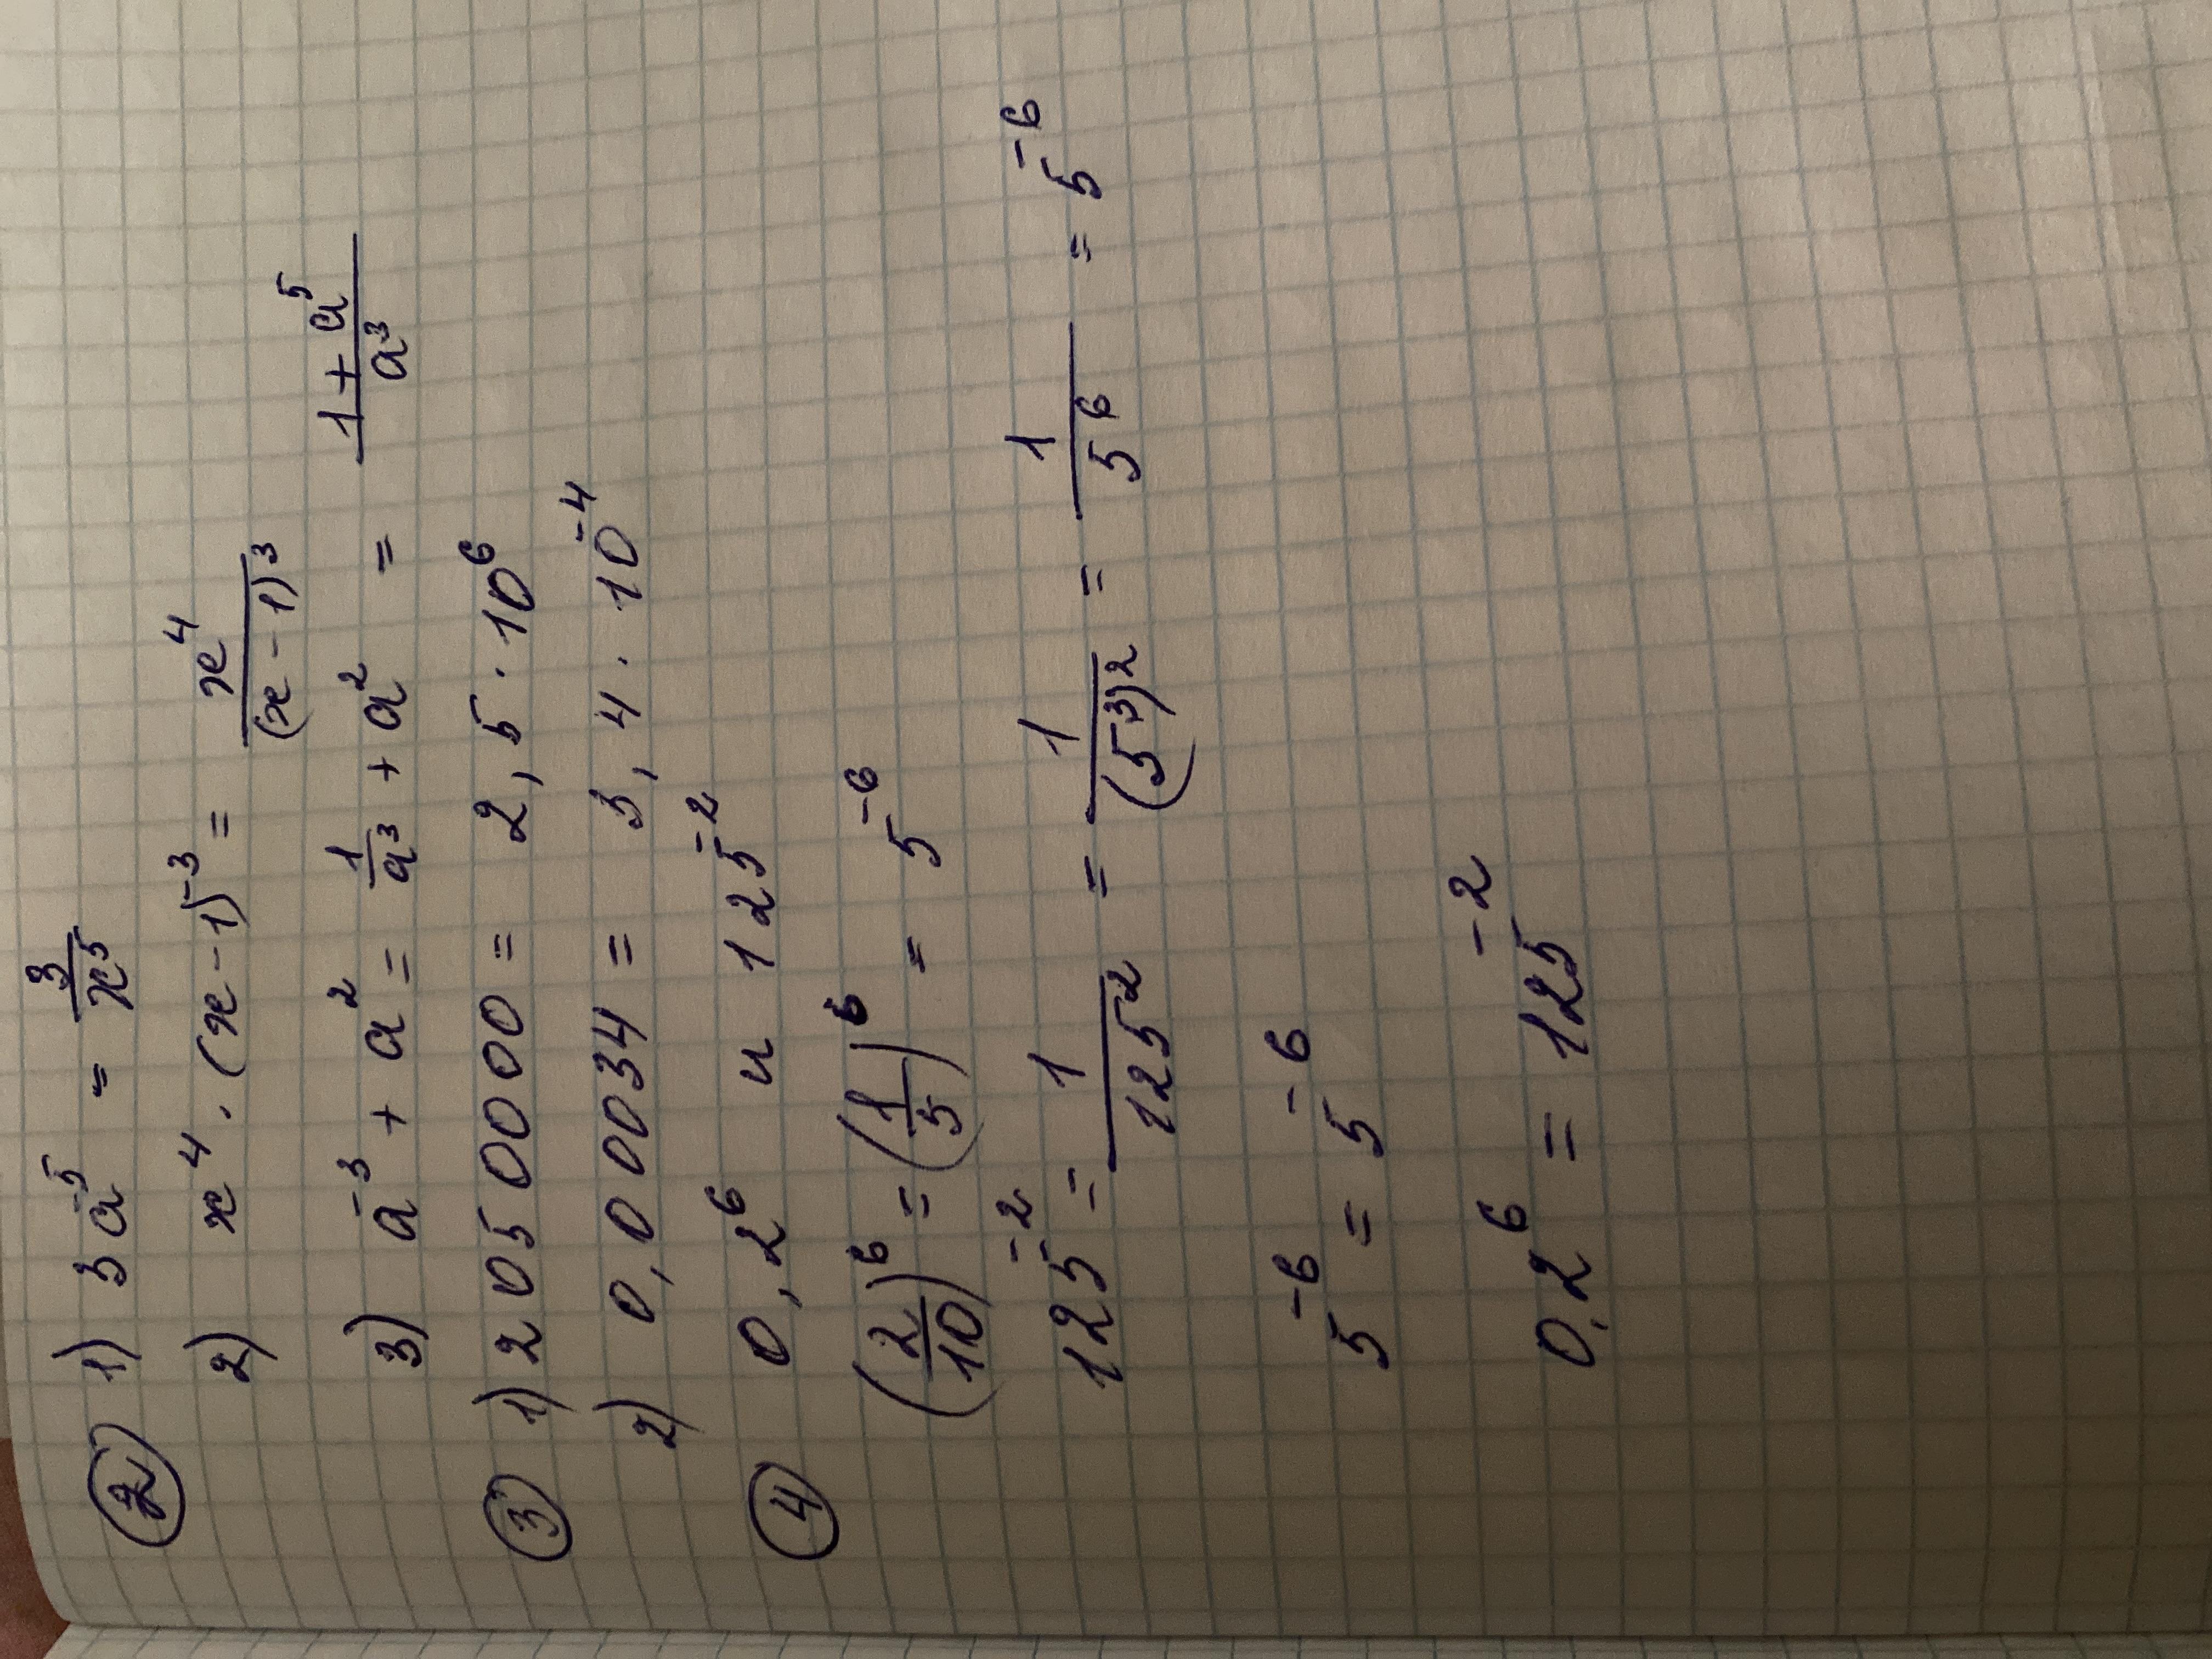 ② 1) 3a⁻⁵ = 3/x⁵
2) x⁴ · (x - 1)⁻³ = x⁴/(x - 1)³
3) a⁻³ + a² = 1/a³ + a² = (1 + a⁵)/a³
③ 1) 2050000 = 2,5 · 10⁶
2) 0,00034 = 3,4 · 10⁻⁴
④ 0,2⁶ и 125⁻²
(2/10)⁶ = (1/5)⁶ = 5⁻⁶
125⁻² = 1/125² = 1/(5³)² = 1/5⁶ = 5⁻⁶
5⁻⁶ = 5⁻⁶
0,2⁶ = 125⁻²